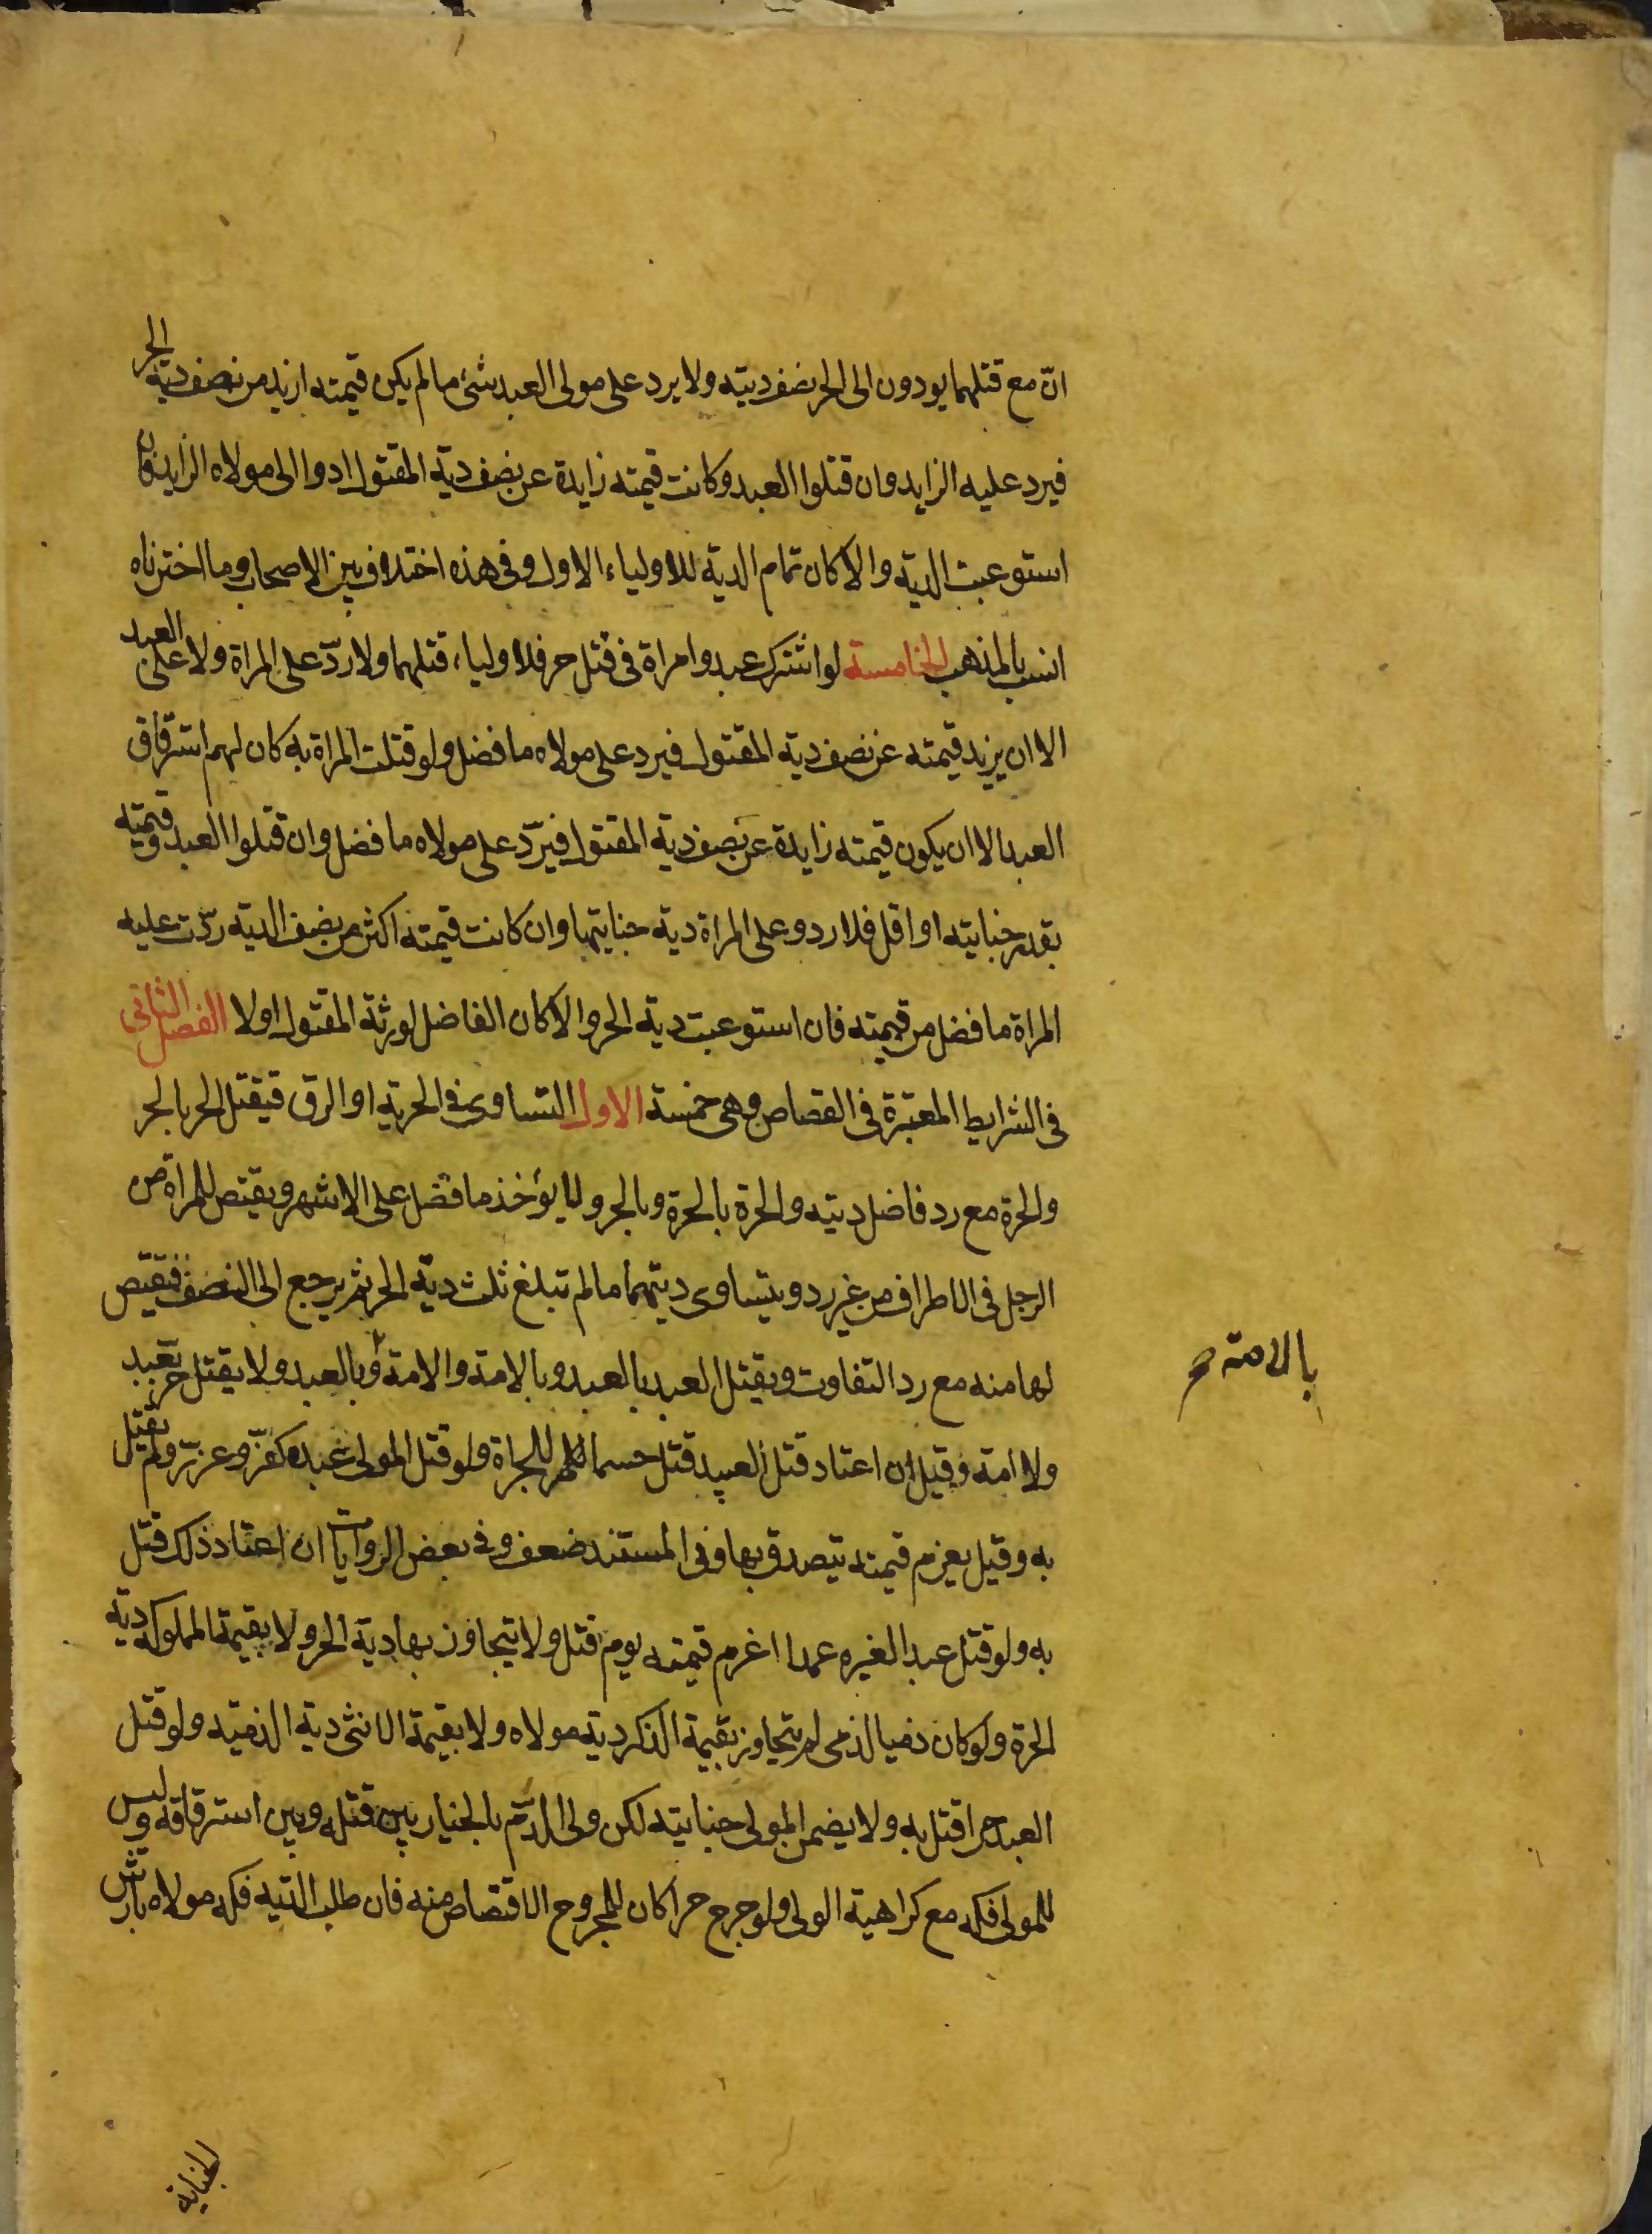 ان مع قتلهما يودون الى الحر نصف ديته ولا يرد على مولى العبد شئ ما لم يكن قيمته ازيد من نصف دية الحر
فيرد عليه الزايد وان قتلوا العبد وكانت قيمته زايدة عن نصف دية المقتول ادوا الى مولاه الزايد فان
استوعبت الدية والا كان تمام الدية للاولياء الاول وفى هذه اختلاف بين الاصحاب وما اخترناه
انسب بالمذهب الخامسة لو اشترك عبد وامراة فى قتل حر فللاولياء قتلهما ولا ردّ على المراة ولا على العبد
الا ان يزيد قيمته عن نصف دية المقتول فيرد على مولاه ما فضل ولو قتلت المراة به كان لهم استرقاق
العبد الا ان يكون قيمته زايدة عن نصف دية المقتول فيردّ على مولاه ما فضل وان قتلوا العبد وقيمته
بقدر جنايته او اقل فلا رد وعلى المراة دية جنايتها وان كانت قيمته اكثر من نصف الدية ردّت عليه
المراة ما فضل من قيمته فان استوعبت دية الحر والا كان الفاضل لورثة المقتول اولا الفصل الثانى
فى الشرايط المعتبرة فى القصاص وهى خمسة الاول التساوى فى الحرية او الرق فيقتل الحر بالحر
والحرة مع رد فاضل ديته والحرة بالحرة وبالحر ولا يؤخذ ما فضل على الاشهر ويقتص للمراة من
الرجل فى الاطراف من غير رد ويتساوى ديتهما ما لم تبلغ ثلث دية الحر ثم يرجع الى النصف فيقتص
لها منه مع رد التفاوت ويقتل العبد بالعبد وبالامة والامة وبالعبد ولا يقتل حر بعبد
بالامة صح
ولا امة وقيل ان اعتاد قتل العبيد قتل حسما للجراة ولو قتل المولى عبده كفّر وعزّر ولم يقتل
به وقيل يغرم قيمته يتصدق بها وفى المستند ضعف وفى بعض الروايات ان اعتاد ذلك قتل
به ولو قتل عبدا لغيره عمدا اغرم قيمته يوم قتل ولا يتجاوز بها دية الحر ولا بقيمة المملوكة دية
الحرة ولو كان ذميا لذمى لم يتجاوز بقيمة الذكر دية مولاه ولا بقيمة الانثى دية الذمية ولو قتل
العبد حرا قتل به ولا يضمن المولى جنايته لكن ولى الدّم بالخيار بين قتله وبين استرقاقه وليس
للمولى فكه مع كراهية الولى ولو جرح حرا كان للمجروح الاقتصاص منه فان طلب الدية فكه مولاه بارش
الجناية